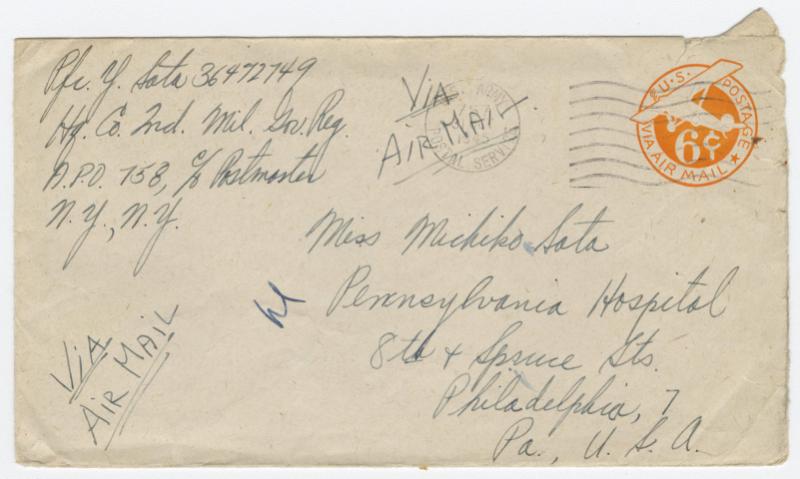 Pfc. Y. Sata 36472749
Hq. Co. 2nd. Mil. Gov. Reg.
A.P.O. 758, c/o Postmaster
N.Y., N.Y.
Via
Air Mail
U.S. ARMY
POSTAL SERVICE
U.S. POSTAGE
6¢
VIA AIR MAIL
Miss Michiko Sata
Pennsylvania Hospital
8th & Spruce Sts.
Philadelphia, 7
Pa., U.S.A.
Via
Air Mail